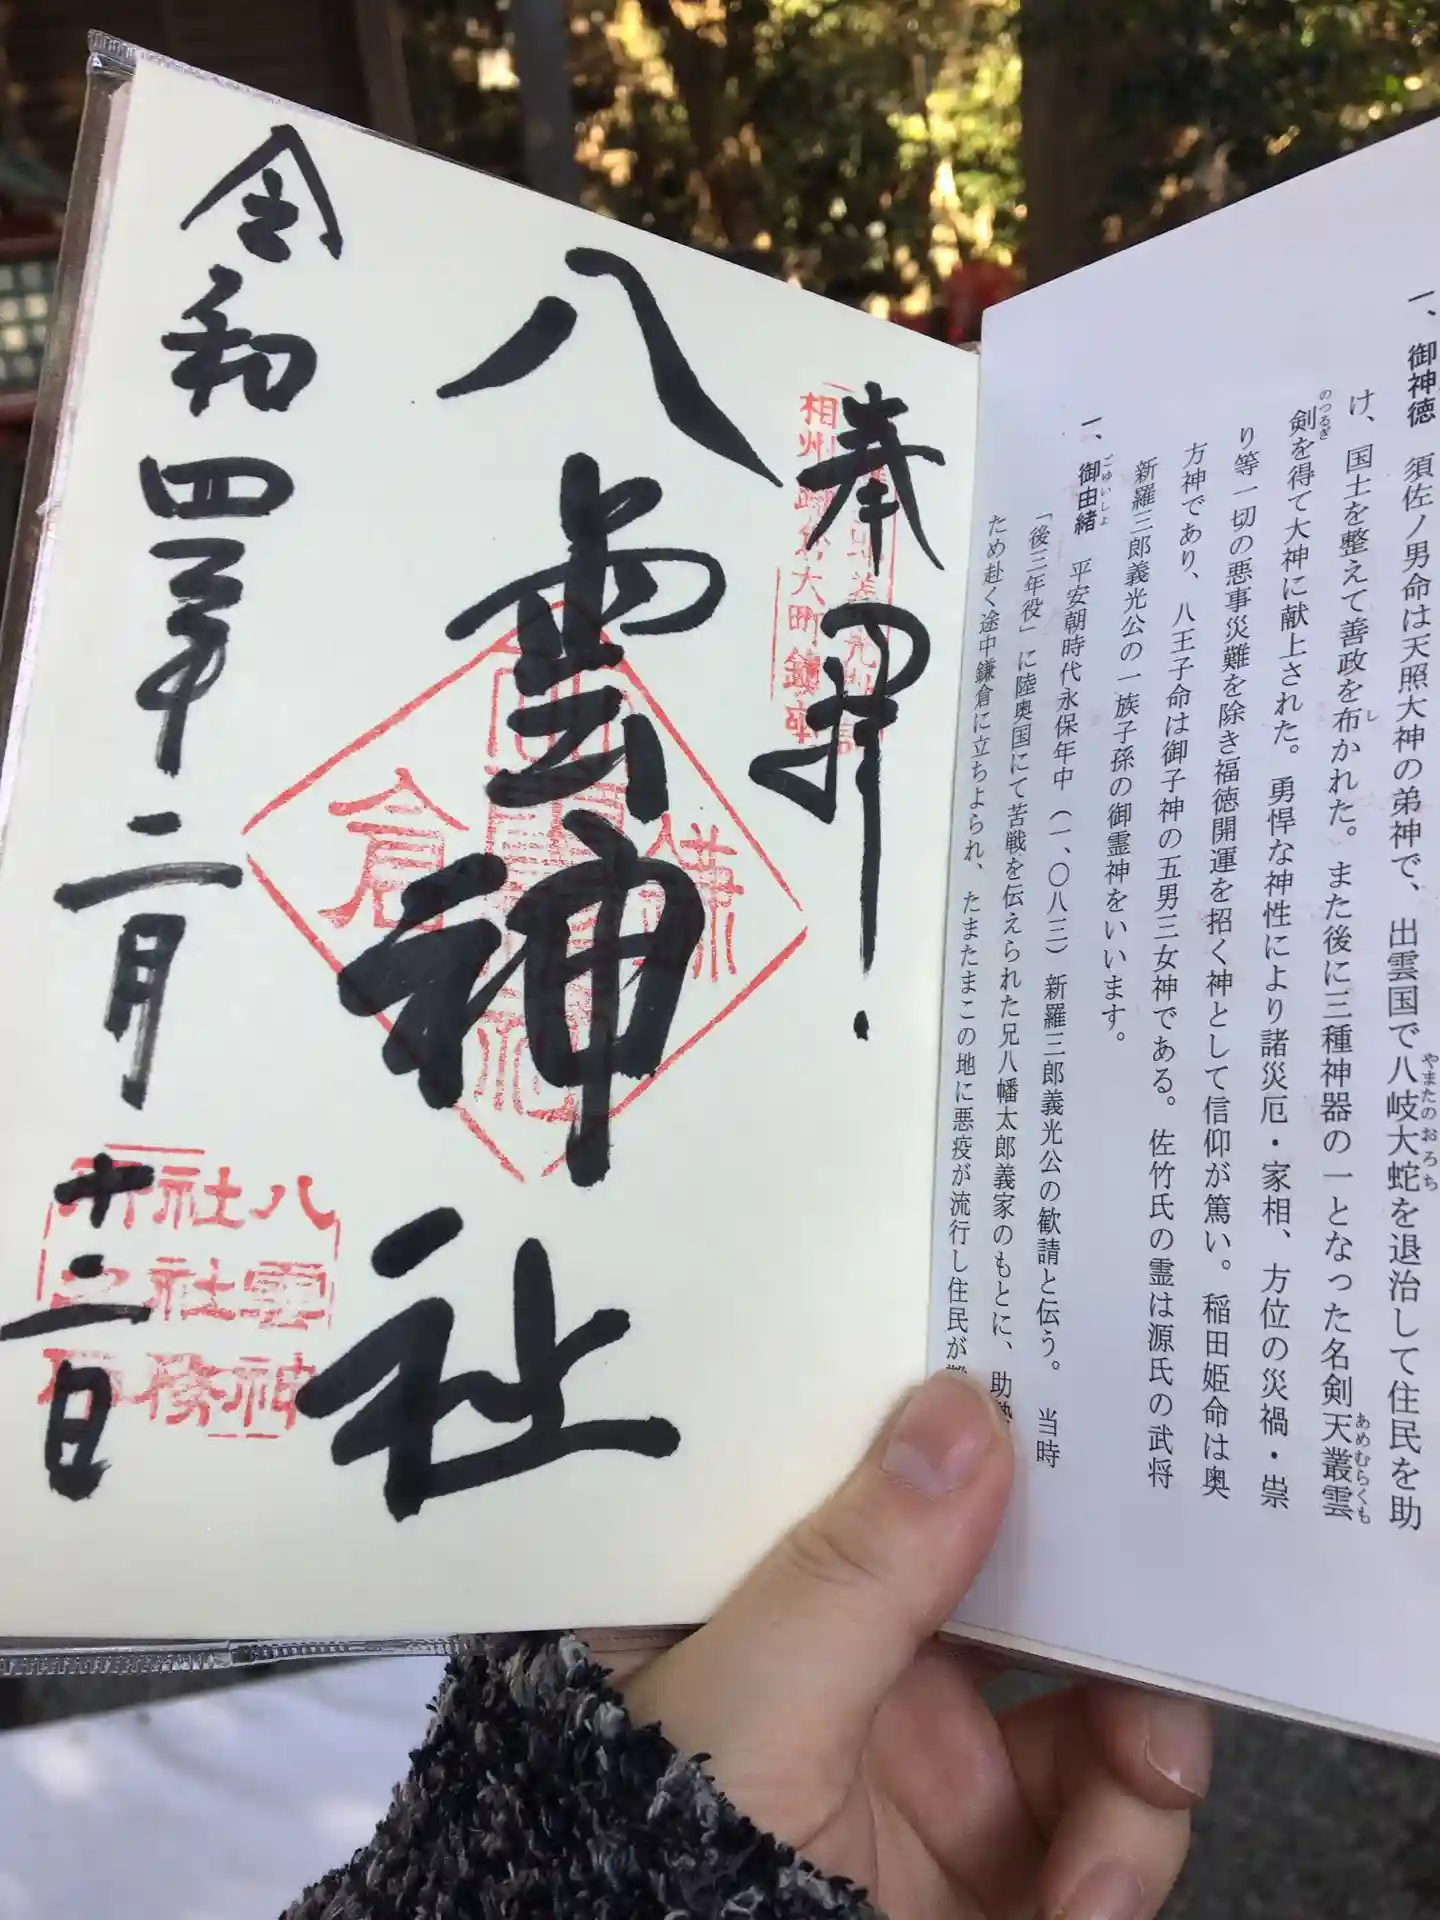 一、御神徳　須佐ノ男命は天照大神の弟神で、出雲国で八岐大蛇を退治して住民を助
やまたのおろち
け、国土を整えて善政を布かれた。また後に三種神器の一となった名剣天叢雲
し
あめむらくも
剣を得て大神に献上された。勇悍な神性により諸災厄・家相、方位の災禍・祟
のつるぎ
り等一切の悪事災難を除き福徳開運を招く神として信仰が篤い。稲田姫命は奥
方神であり、八王子命は御子神の五男三女神である。佐竹氏の霊は源氏の武将
新羅三郎義光公の一族子孫の御霊神をいいます。
一、御由緒　平安朝時代永保年中（一、〇八三）新羅三郎義光公の勧請と伝う。当時
ごゆいしよ
「後三年役」に陸奥国にて苦戦を伝えられた兄八幡太郎義家のもとに、助
ため赴く途中鎌倉に立ちよられ、たまたまこの地に悪疫が流行し住民が
奉拝
相州鎌倉大町鎮座
八雲神社
鎌倉
令和四年二月十二日
八雲神
社社務
所之印